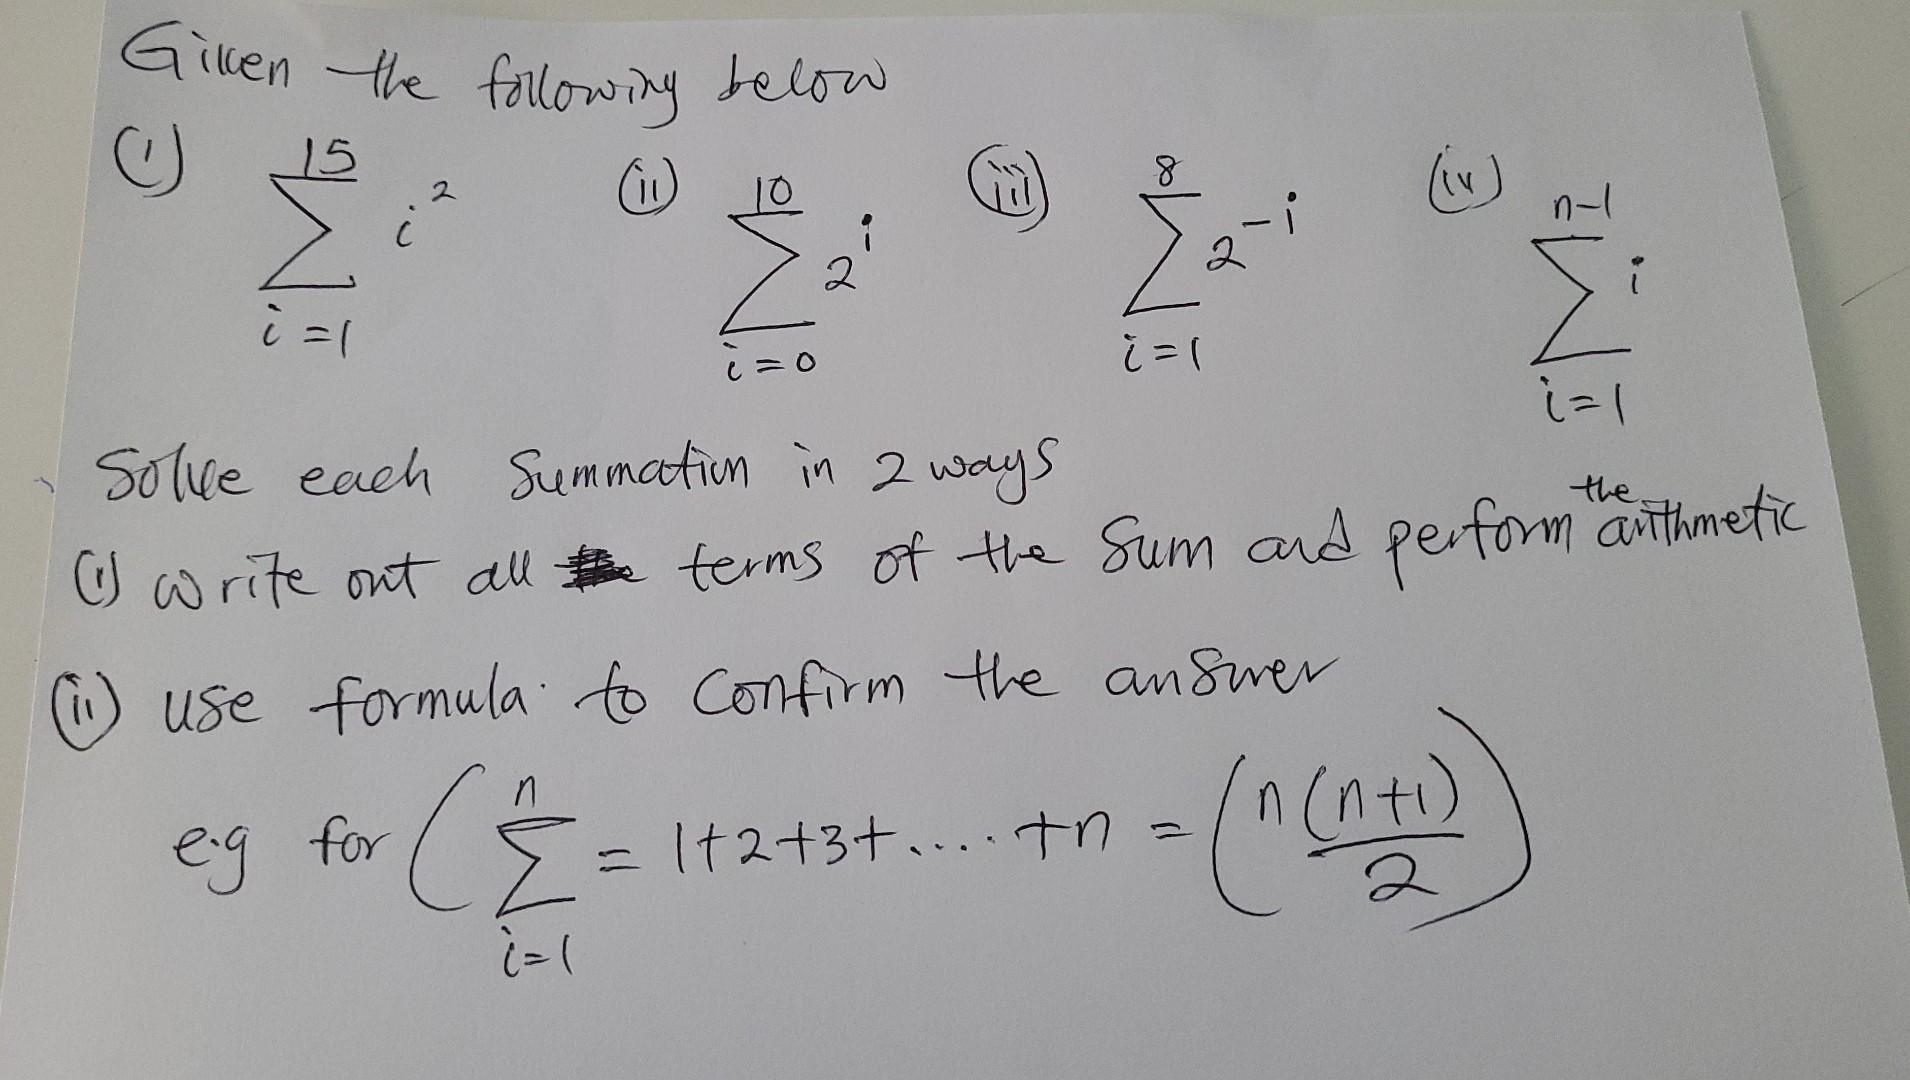 Given the following below
(i) 15 ∑ i=1 i² (ii) 10 ∑ i=0 2^i (iii) 8 ∑ i=1 2^-i (iv) n-1 ∑ i=1 i
Solve each Summation in 2 ways
(i) write out all terms of the Sum and perform the arithmetic
(ii) use formula to Confirm the answer
e.g for ( n ∑ i=1 = 1+2+3+....+n = (n(n+1)/2)